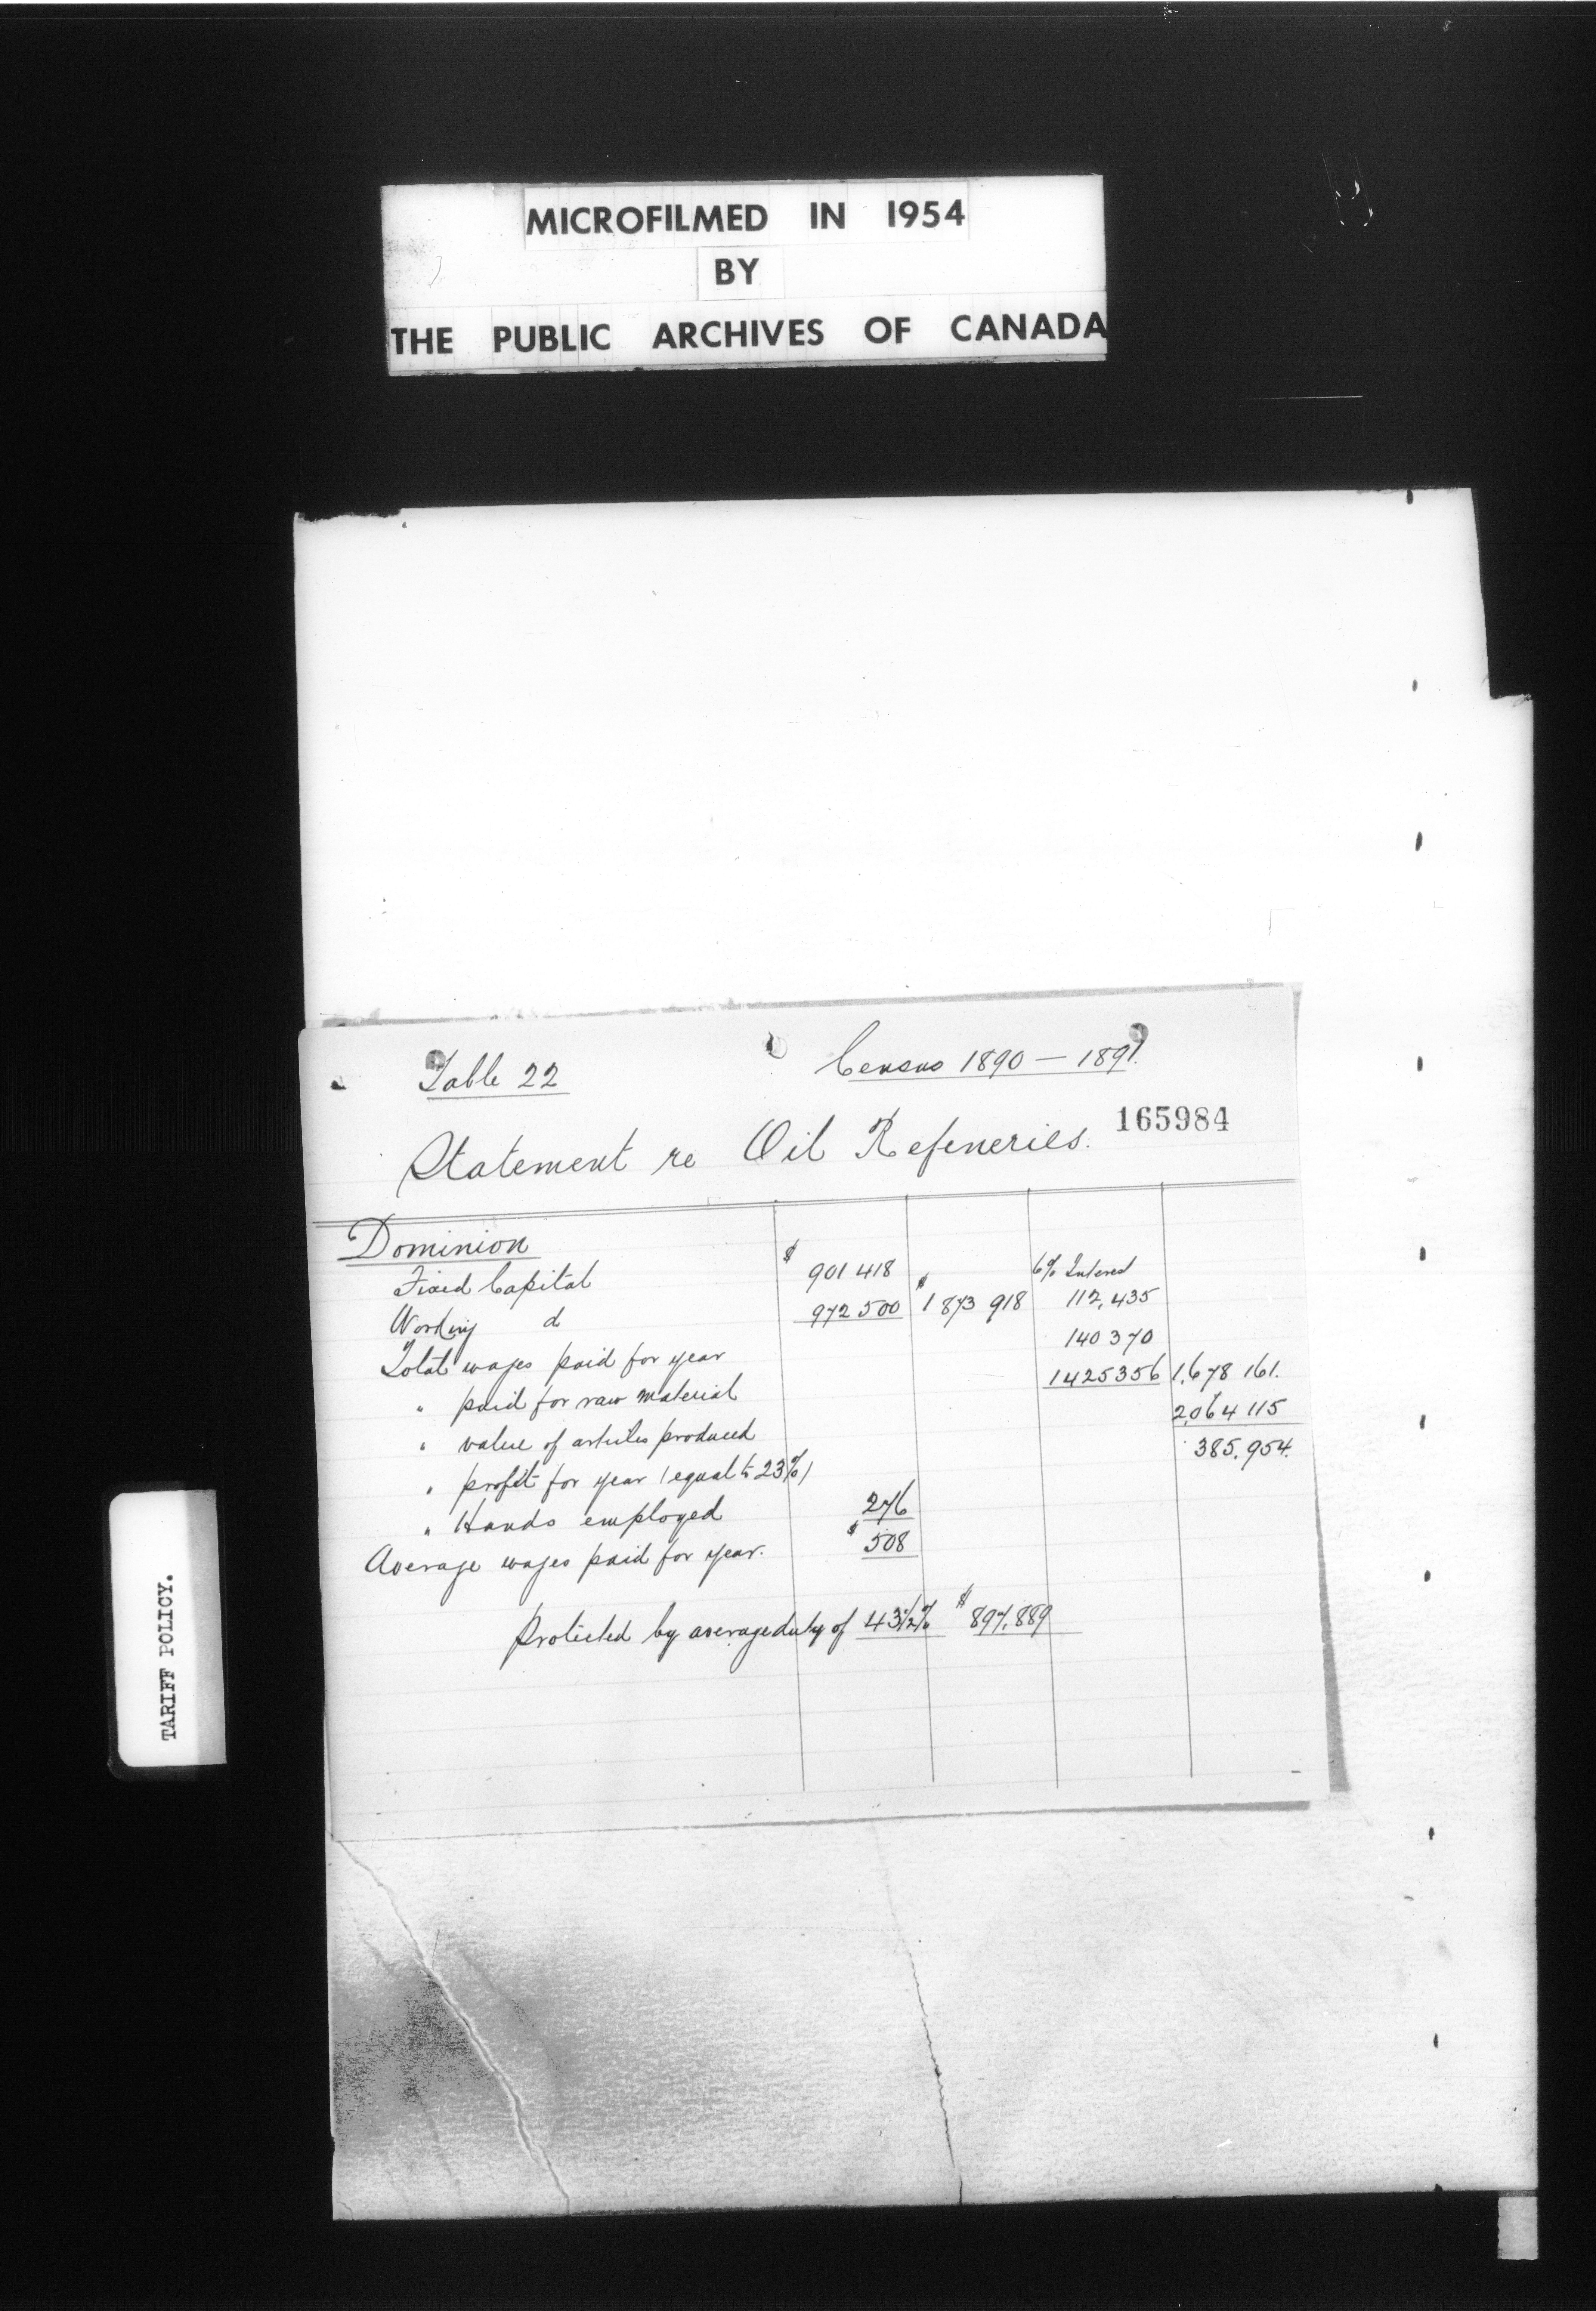 MICROFILMED IN 1954
BY
THE PUBLIC ARCHIVES OF CANADA
Table 22 Census 1890 — 1891.
165984
Statement re Oil Refeneries.
Dominion
Fixed Capital $ 901 418 6% Interest
Working do 972 500 $ 1 873 918 112,435
Total wages paid for year 140 370
" paid for raw material 1425356 1,678 161.
" value of articles produced 2,064 115
" profit for year (equal to 23%) 385,954.
" Hands employed 276
Average wages paid for year. $ 508
Protected by average duty of 43 1/2% $ 897,889
TARIFF POLICY.